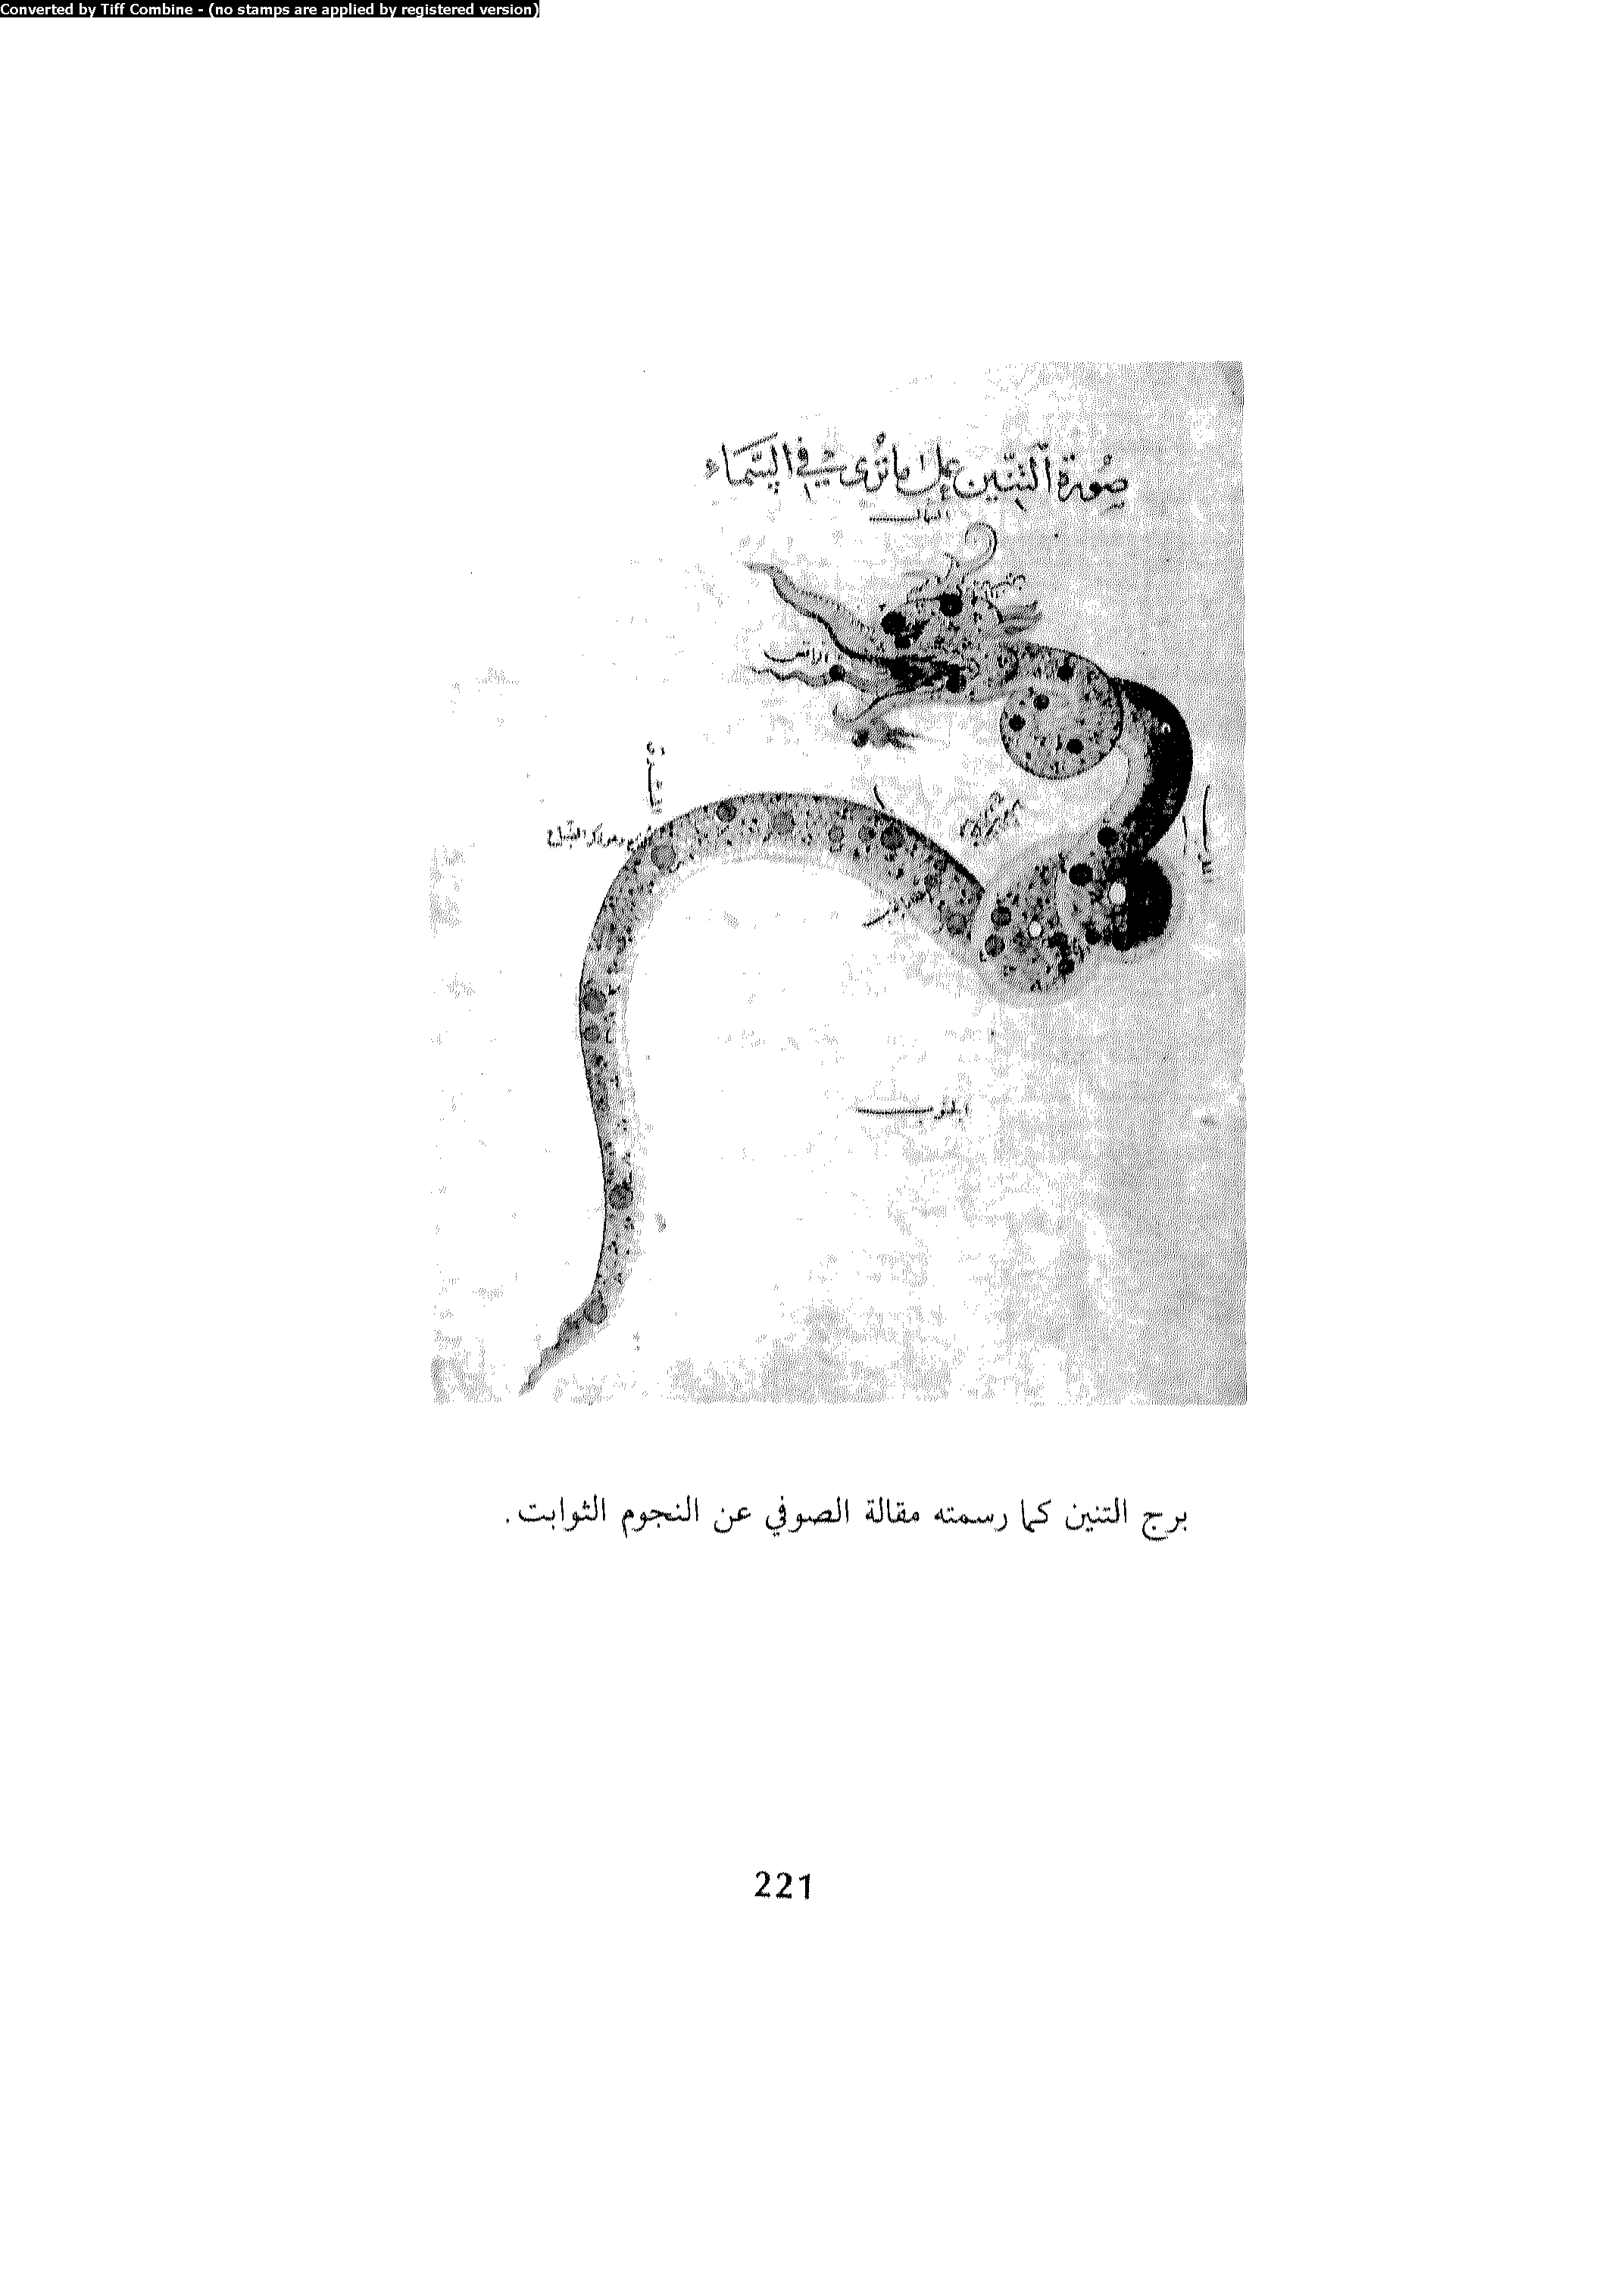 Converted by Tiff Combine - (no stamps are applied by registered version)
صورة التنين على ما ترى في السماء
الشمال
الراس
المشرق
المغرب
الجنوب
برج التنين كما رسمته مقالة الصوفي عن النجوم الثوابت.
221